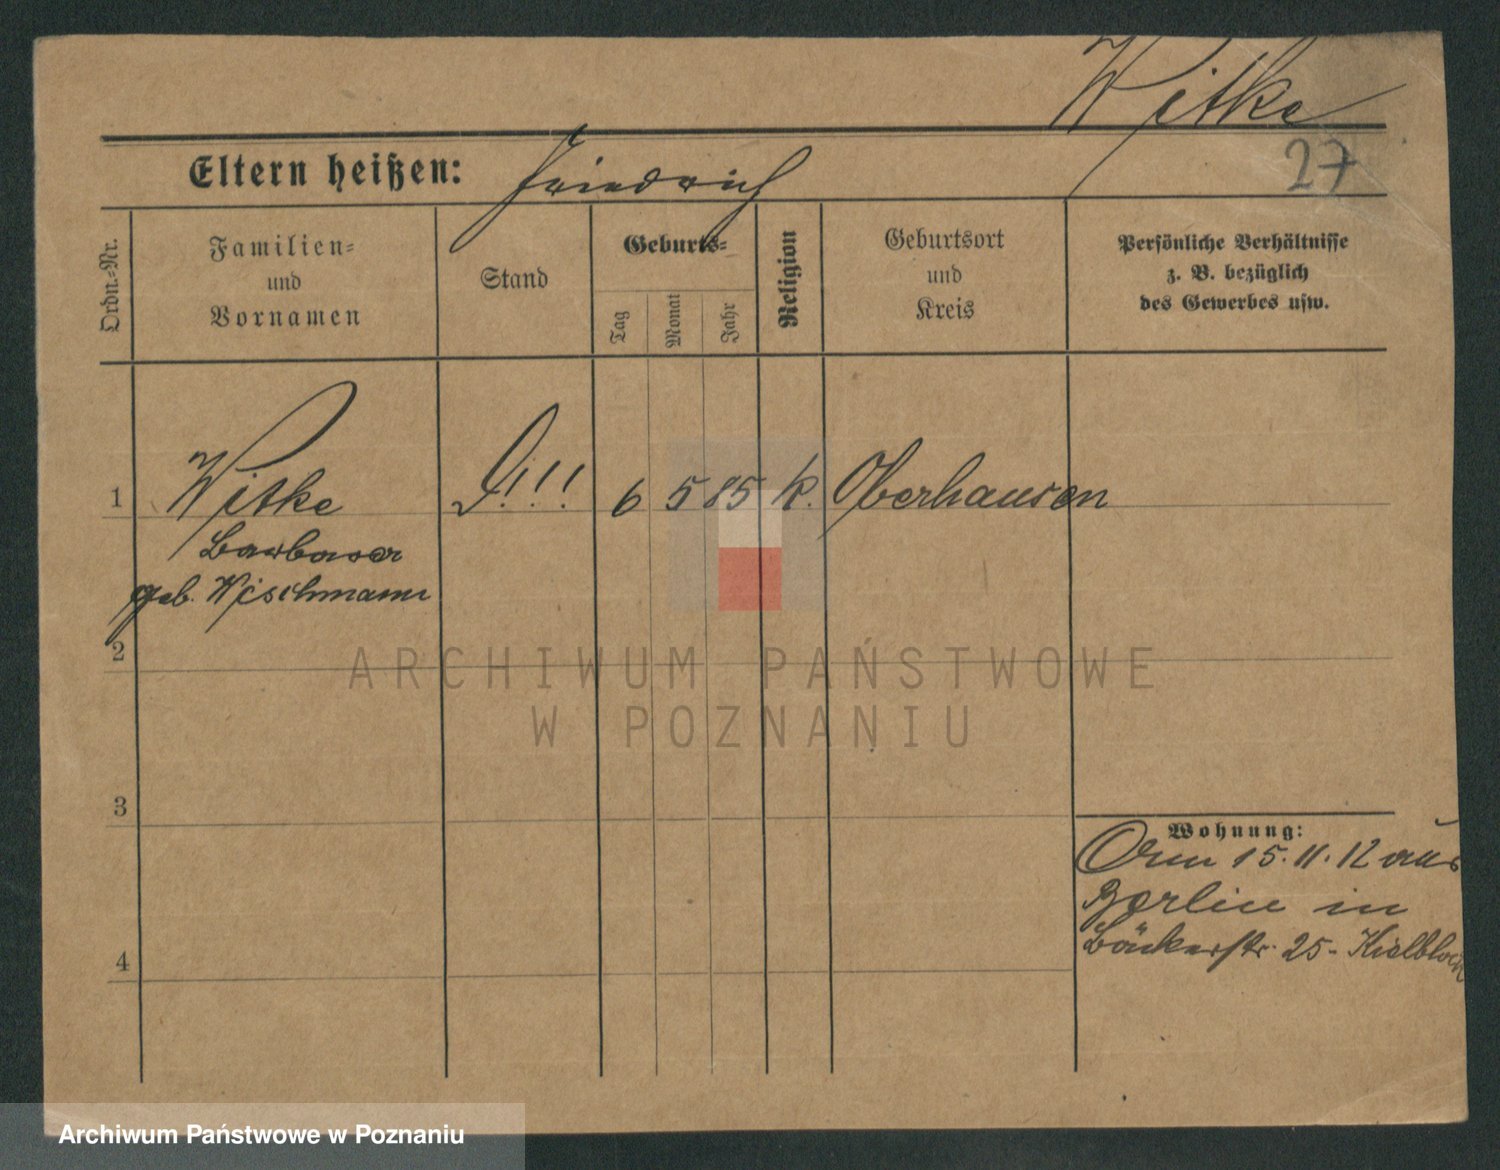 Witke
Eltern heißen: Friedrich
27
Ordn.-Nr.
Familien-
und
Vornamen
Stand
Geburts-
Tag
Monat
Jahr
Religion
Geburtsort
und
Kreis
Persönliche Verhältnisse
z. B. bezüglich
des Gewerbes usw.
1 Witke 6 5 85 k. Oberhausen
Barbara
geb. Wischmann
2
3
4
Wohnung:
15.11.12 aus
Berlin in
Bäckerstr. 25-
ARCHIWUM PAŃSTWOWE
W POZNANIU
Archiwum Państwowe w Poznaniu